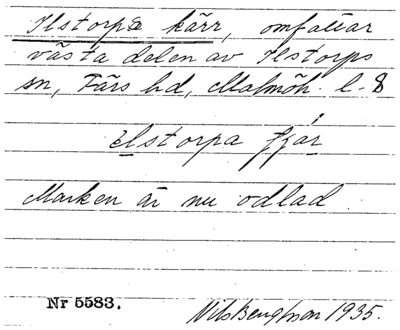 Ilstorpa kärr, omfattar
västa delen av Ilstorps
sn, Färs hd, Malmöh. l.
Elstorpa
Marken är nu odlad.
Nr 5583.
Nils Bengtsson 1935.